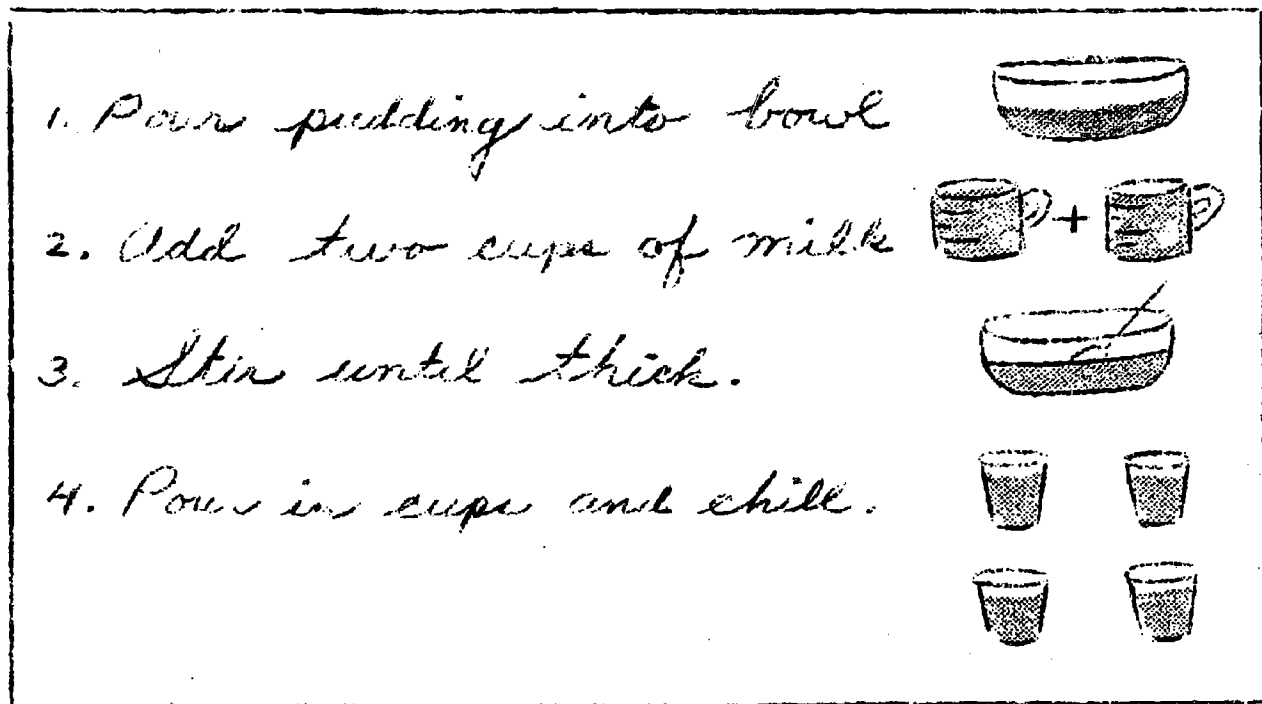 1. Pour pudding into bowl
2. Add two cups of milk
+
3. Stir until thick.
4. Pour in cups and chill.